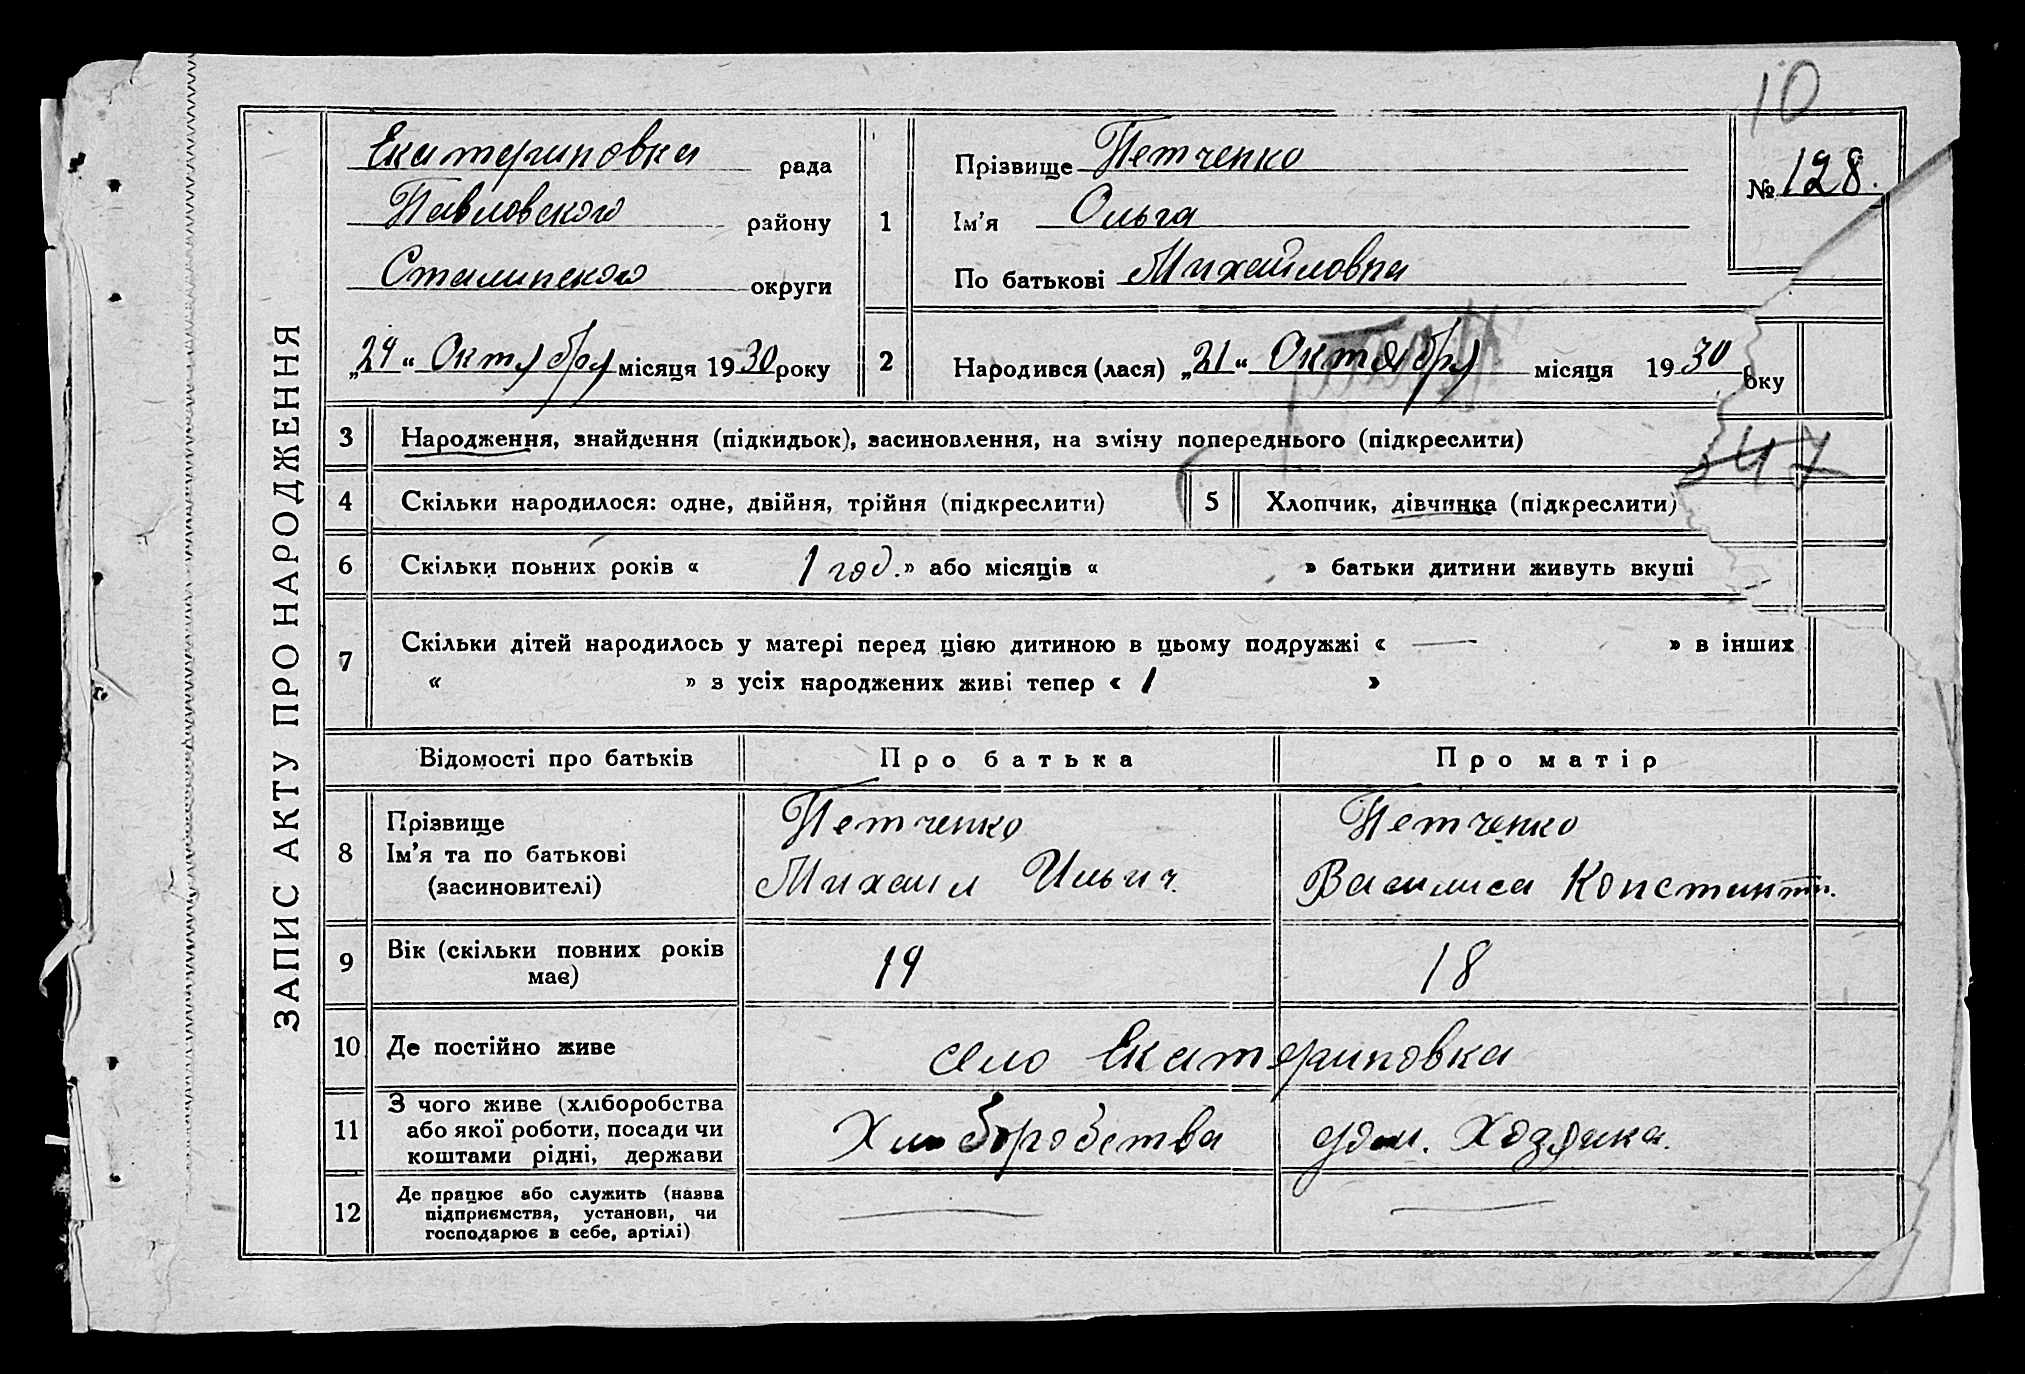 10
ЗАПИС АКТУ ПРО НАРОДЖЕННЯ
Екатериновка рада
Павловского району
Сталинского округи
„24“ Октября місяця 1930 року
1
Прізвище Петченко
Ім'я Ольга
По батькові Михайловна
№ 128.
2
Народився (лася) „21“ Октября місяця 1930 оку
3 Народження, знайдення (підкидьок), засиновлення, на зміну попереднього (підкреслити)
347
4 Скільки народилося: одне, двійня, трійня (підкреслити) 5 Хлопчик, дівчинка (підкреслити)
6 Скільки повних років « 1 год. » або місяців « » батьки дитини живуть вкупі
7 Скільки дітей народилось у матері перед цією дитиною в цьому подружжі « — » в інших
« » з усіх народжених живі тепер « 1 »
Відомості про батьків Про батька Про матір
8 Прізвище
Ім'я та по батькові
(засиновителі)
Петченко
Михаил Ильич.
Петченко
Василиса Константи.
9 Вік (скільки повних років
має)
19
18
10 Де постійно живе село Екатериновка
11 З чого живе (хліборобства
або якої роботи, посади чи
коштами рідні, держави
Хлиборобства
дом. Хозяика.
12 Де працює або служить (назва
підприємства, установи, чи
господарює в себе, артілі)
— —